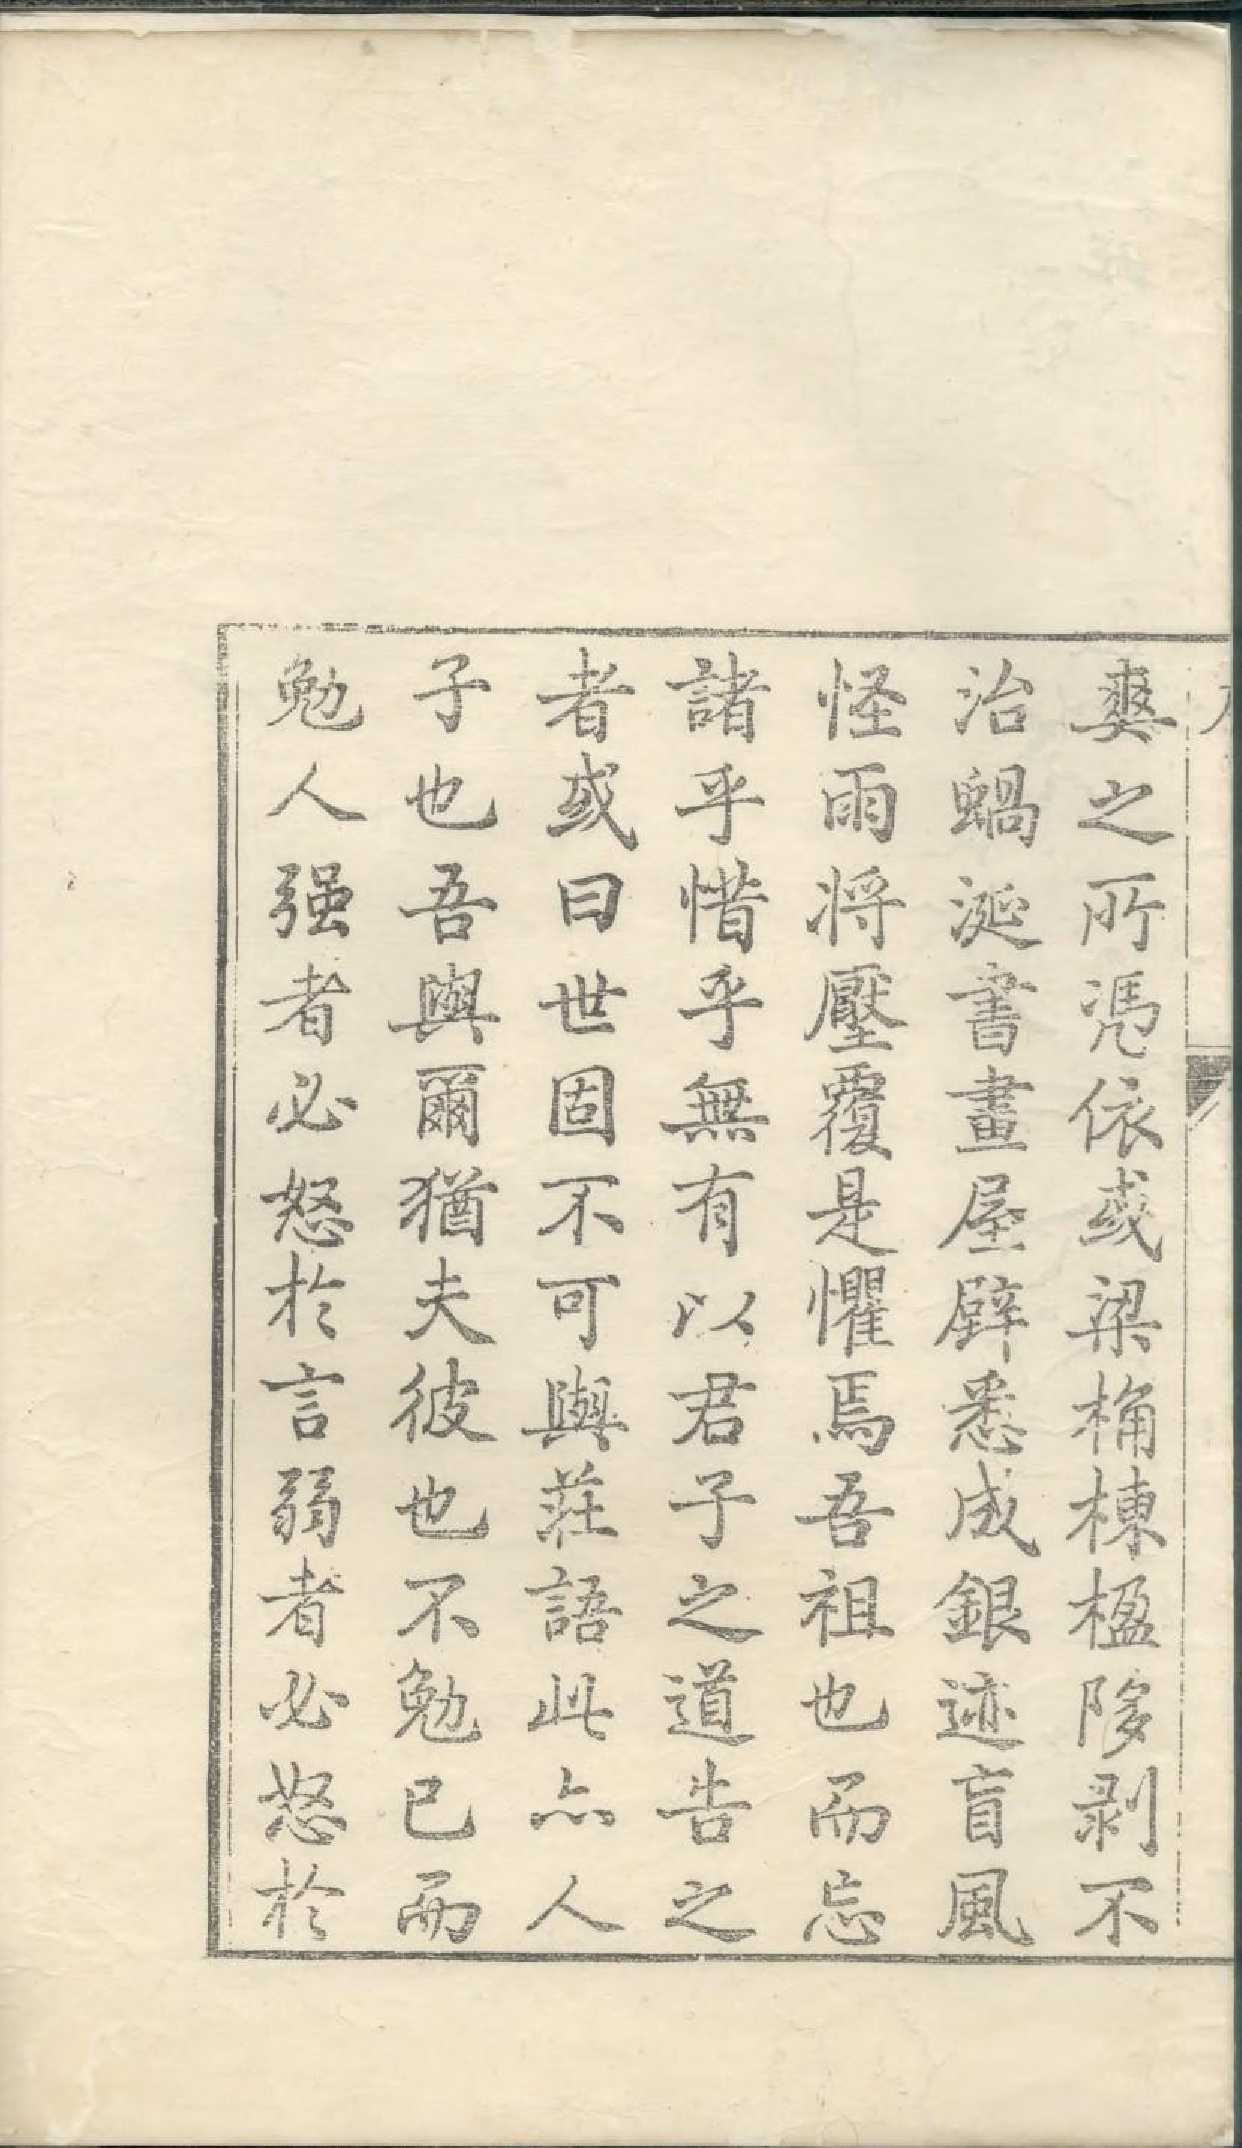 爽之所馮依或梁桷棟楹陊剥不
治蝸涎書畫屋壁悉成銀迹盲風
怪雨将壓覆是懼焉吾祖也而忘
諸乎惜乎無有以君子之道告之
者或曰世固不可與莊語此亦人
子也吾與爾猶夫彼也不勉已而
勉人强者必怒於言弱者必怒於